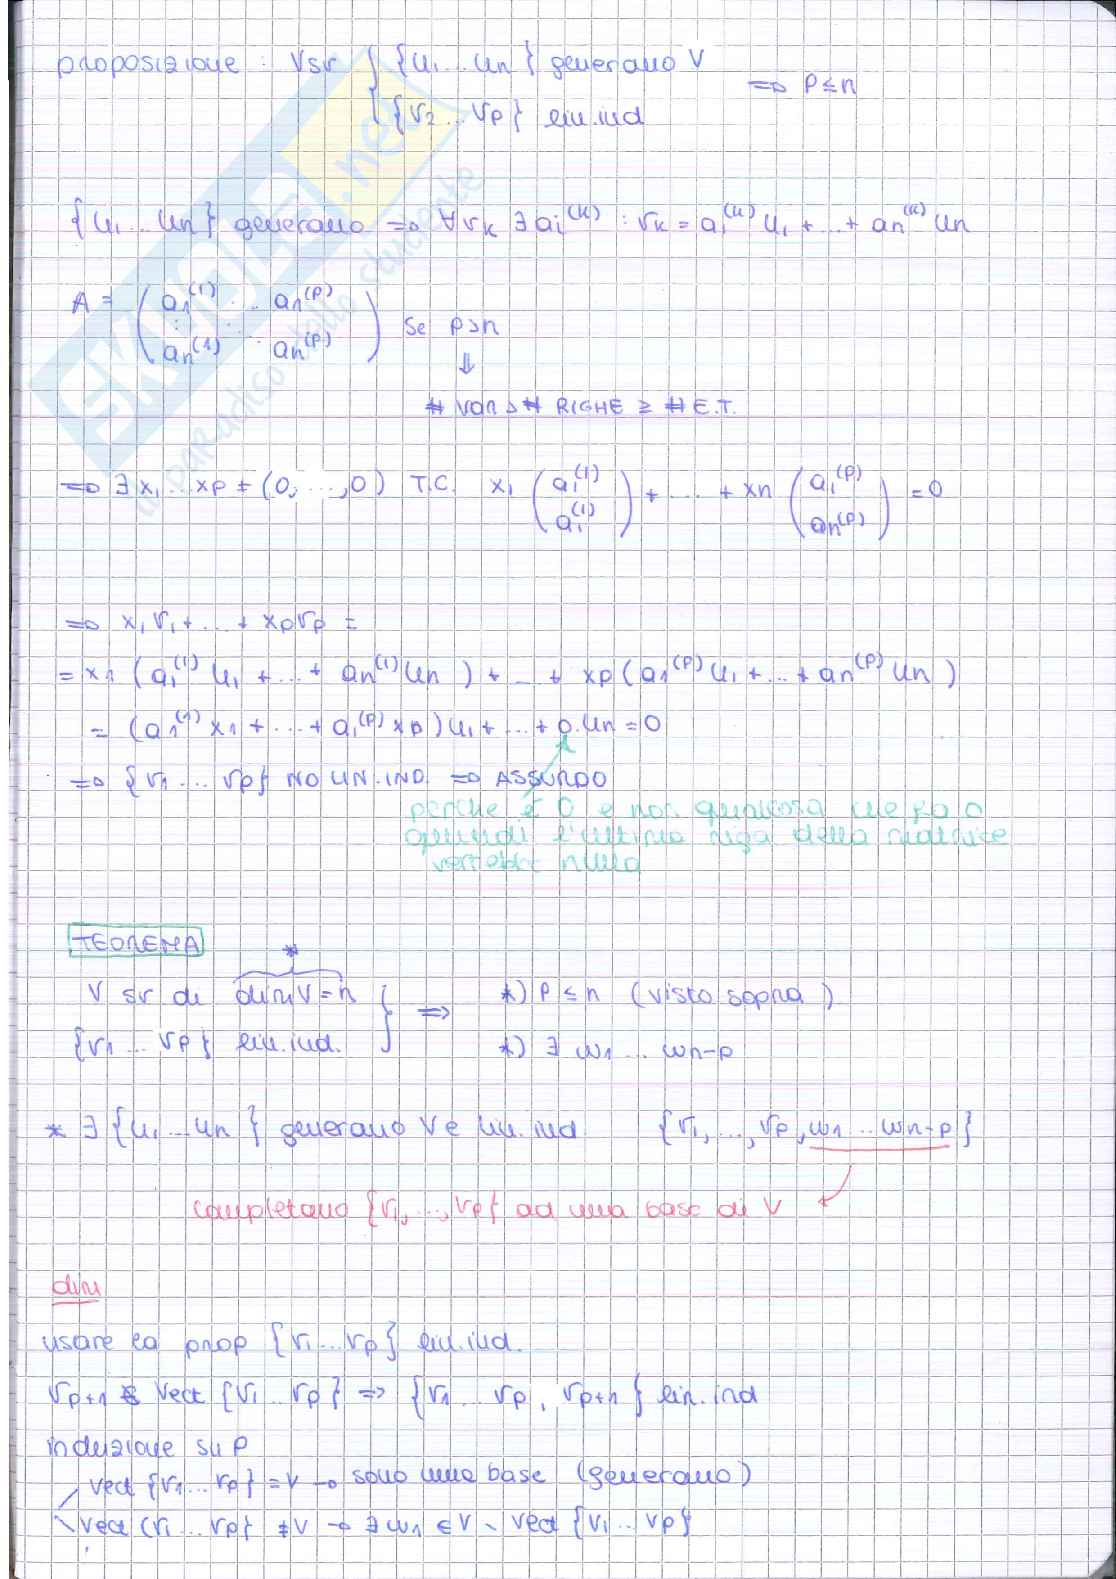 proposizione : V sv { {u₁ ... uₙ} generano V
{v₂ ... vₚ} lin.ind ⇒ p ≤ n
{u₁ ... uₙ} generano ⇒ ∀ vₖ ∃ aᵢ⁽ᵏ⁾ : vₖ = a₁⁽ᵏ⁾ u₁ + ... + aₙ⁽ᵏ⁾ uₙ
A = ( a₁⁽¹⁾ ... a₁⁽ᵖ⁾
aₙ⁽¹⁾ ... aₙ⁽ᵖ⁾ ) se p > n
⇓
# var > # RIGHE ≥ # E.T.
⇒ ∃ x₁ ... xₚ ≠ (0, ..., 0) T.C. x₁ ( a₁⁽¹⁾ a₁⁽¹⁾ ) + ... + xₙ ( a₁⁽ᵖ⁾ aₙ⁽ᵖ⁾ ) = 0
⇒ x₁v₁ + ... + xₚvₚ =
= x₁ (a₁⁽¹⁾ u₁ + ... + aₙ⁽¹⁾ uₙ) + ... + xₚ (a₁⁽ᵖ⁾ u₁ + ... + aₙ⁽ᵖ⁾ uₙ)
= (a₁⁽¹⁾ x₁ + ... + a₁⁽ᵖ⁾ xₚ) u₁ + ... + 0 . uₙ = 0
⇒ {v₁ ... vₚ} NO LIN.IND. ⇒ ASSURDO
perche è 0 e non qualcosa che fa 0
quindi l'ultima riga della matrice
verrebbe nulla
TEOREMA
*
V sv di dim V = n } ⇒ *) p ≤ n (visto sopra)
{v₁ ... vₚ} lin.ind. *) ∃ w₁ ... wₙ₋ₚ
* ∃ {u₁ ... uₙ} generano V e lin.ind {v₁, ..., vₚ, w₁ ... wₙ₋ₚ}
completano {v₁, ..., vₚ} ad una base di V
dim
usare la prop {v₁ ... vₚ} lin.ind.
vₚ₊₁ ∉ Vect {v₁ ... vₚ} ⇒ {v₁ ... vₚ, vₚ₊₁} lin.ind
induzione su p
vect {v₁ ... vₚ} = V → sono una base (generano)
vect {v₁ ... vₚ} ≠ V → ∃ w₁ ∈ V \ Vect {v₁ ... vₚ}
SKUOLA.net
il paradiso dello studente